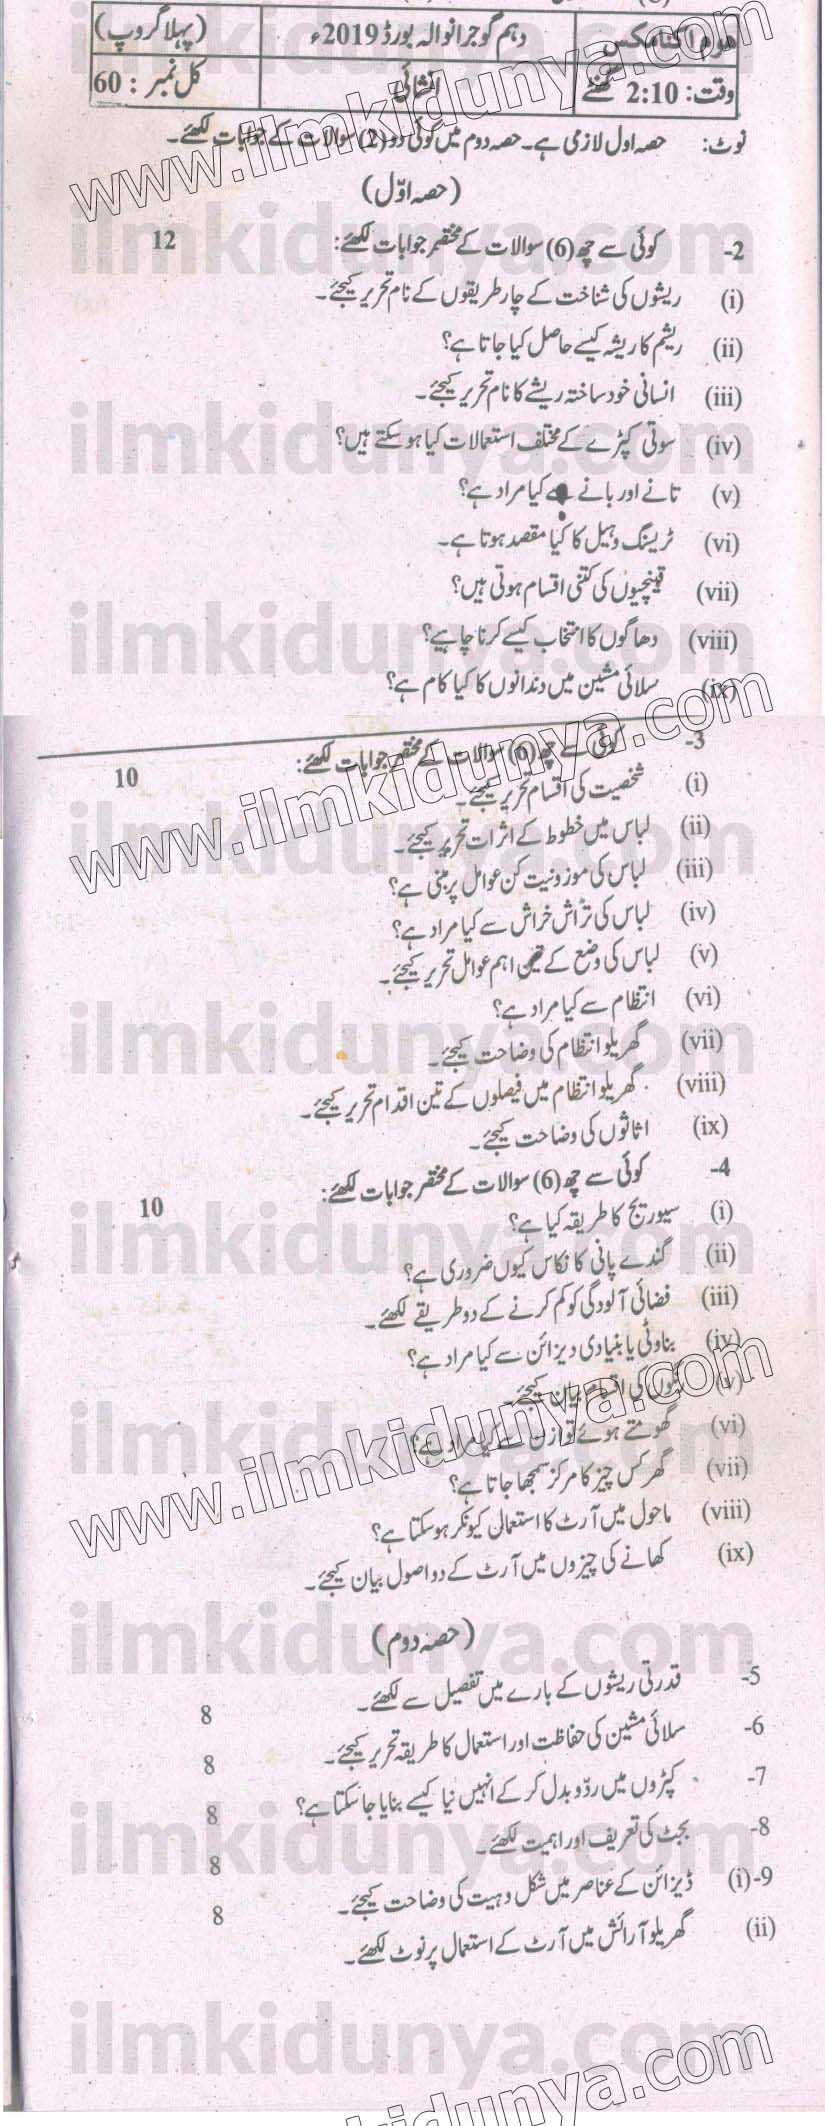 ہوم اکنامکس دہم گوجرانوالہ بورڈ 2019ء (پہلا گروپ)
وقت: 2:10 گھنٹے انشائی کل نمبر: 60
نوٹ: حصہ اول لازمی ہے۔ حصہ دوم میں کوئی دو (2) سوالات کے جوابات لکھئے۔
(حصہ اوّل)
2- کوئی سے چھ (6) سوالات کے مختصر جوابات لکھئے: 12
(i) ریشوں کی شناخت کے چار طریقوں کے نام تحریر کیجئے۔
(ii) ریشم کا ریشہ کیسے حاصل کیا جاتا ہے؟
(iii) انسانی خود ساختہ ریشے کا نام تحریر کیجئے۔
(iv) سوتی کپڑے کے مختلف استعمالات کیا ہو سکتے ہیں؟
(v) تانے اور بانے سے کیا مراد ہے؟
(vi) ٹریسنگ وہیل کا کیا مقصد ہوتا ہے۔
(vii) قینچیوں کی کتنی اقسام ہوتی ہیں؟
(viii) دھاگوں کا انتخاب کیسے کرنا چاہیے؟
(ix) سلائی مشین میں دندانوں کا کیا کام ہے؟
3- کوئی سے چھ (6) سوالات کے مختصر جوابات لکھئے: 10
(i) شخصیت کی اقسام تحریر کیجئے۔
(ii) لباس میں خطوط کے اثرات تحریر کیجئے۔
(iii) لباس کی موزونیت کن عوامل پر مبنی ہے؟
(iv) لباس کی تراش خراش سے کیا مراد ہے؟
(v) لباس کی وضع کے تین اہم عوامل تحریر کیجئے۔
(vi) انتظام سے کیا مراد ہے؟
(vii) گھریلو انتظام کی وضاحت کیجئے۔
(viii) گھریلو انتظام میں فیصلوں کے تین اقدام تحریر کیجئے۔
(ix) اثاثوں کی وضاحت کیجئے۔
4- کوئی سے چھ (6) سوالات کے مختصر جوابات لکھئے: 10
(i) سیوریج کا طریقہ کیا ہے؟
(ii) گندے پانی کا نکاس کیوں ضروری ہے؟
(iii) فضائی آلودگی کو کم کرنے کے دو طریقے لکھئے۔
(iv) بناوٹی یا بنیادی ڈیزائن سے کیا مراد ہے؟
(v) کی اقسام بیان کیجئے۔
(vi) گھومتے ہوئے توازن سے کیا مراد ہے؟
(vii) گھر کس چیز کا مرکز سمجھا جاتا ہے؟
(viii) ماحول میں آرٹ کا استعمال کیونکر ہو سکتا ہے؟
(ix) کھانے کی چیزوں میں آرٹ کے دو اصول بیان کیجئے۔
(حصہ دوم)
5- قدرتی ریشوں کے بارے میں تفصیل سے لکھئے۔ 8
6- سلائی مشین کی حفاظت اور استعمال کا طریقہ تحریر کیجئے۔ 8
7- کپڑوں میں ردّ و بدل کر کے انہیں نیا کیسے بنایا جا سکتا ہے؟ 8
8- بجٹ کی تعریف اور اہمیت لکھئے۔ 8
9-(i) ڈیزائن کے عناصر میں شکل و ہیت کی وضاحت کیجئے۔ 8
(ii) گھریلو آرائش میں آرٹ کے استعمال پر نوٹ لکھئے۔
www.ilmkidunya.com
ilmkidunya.com